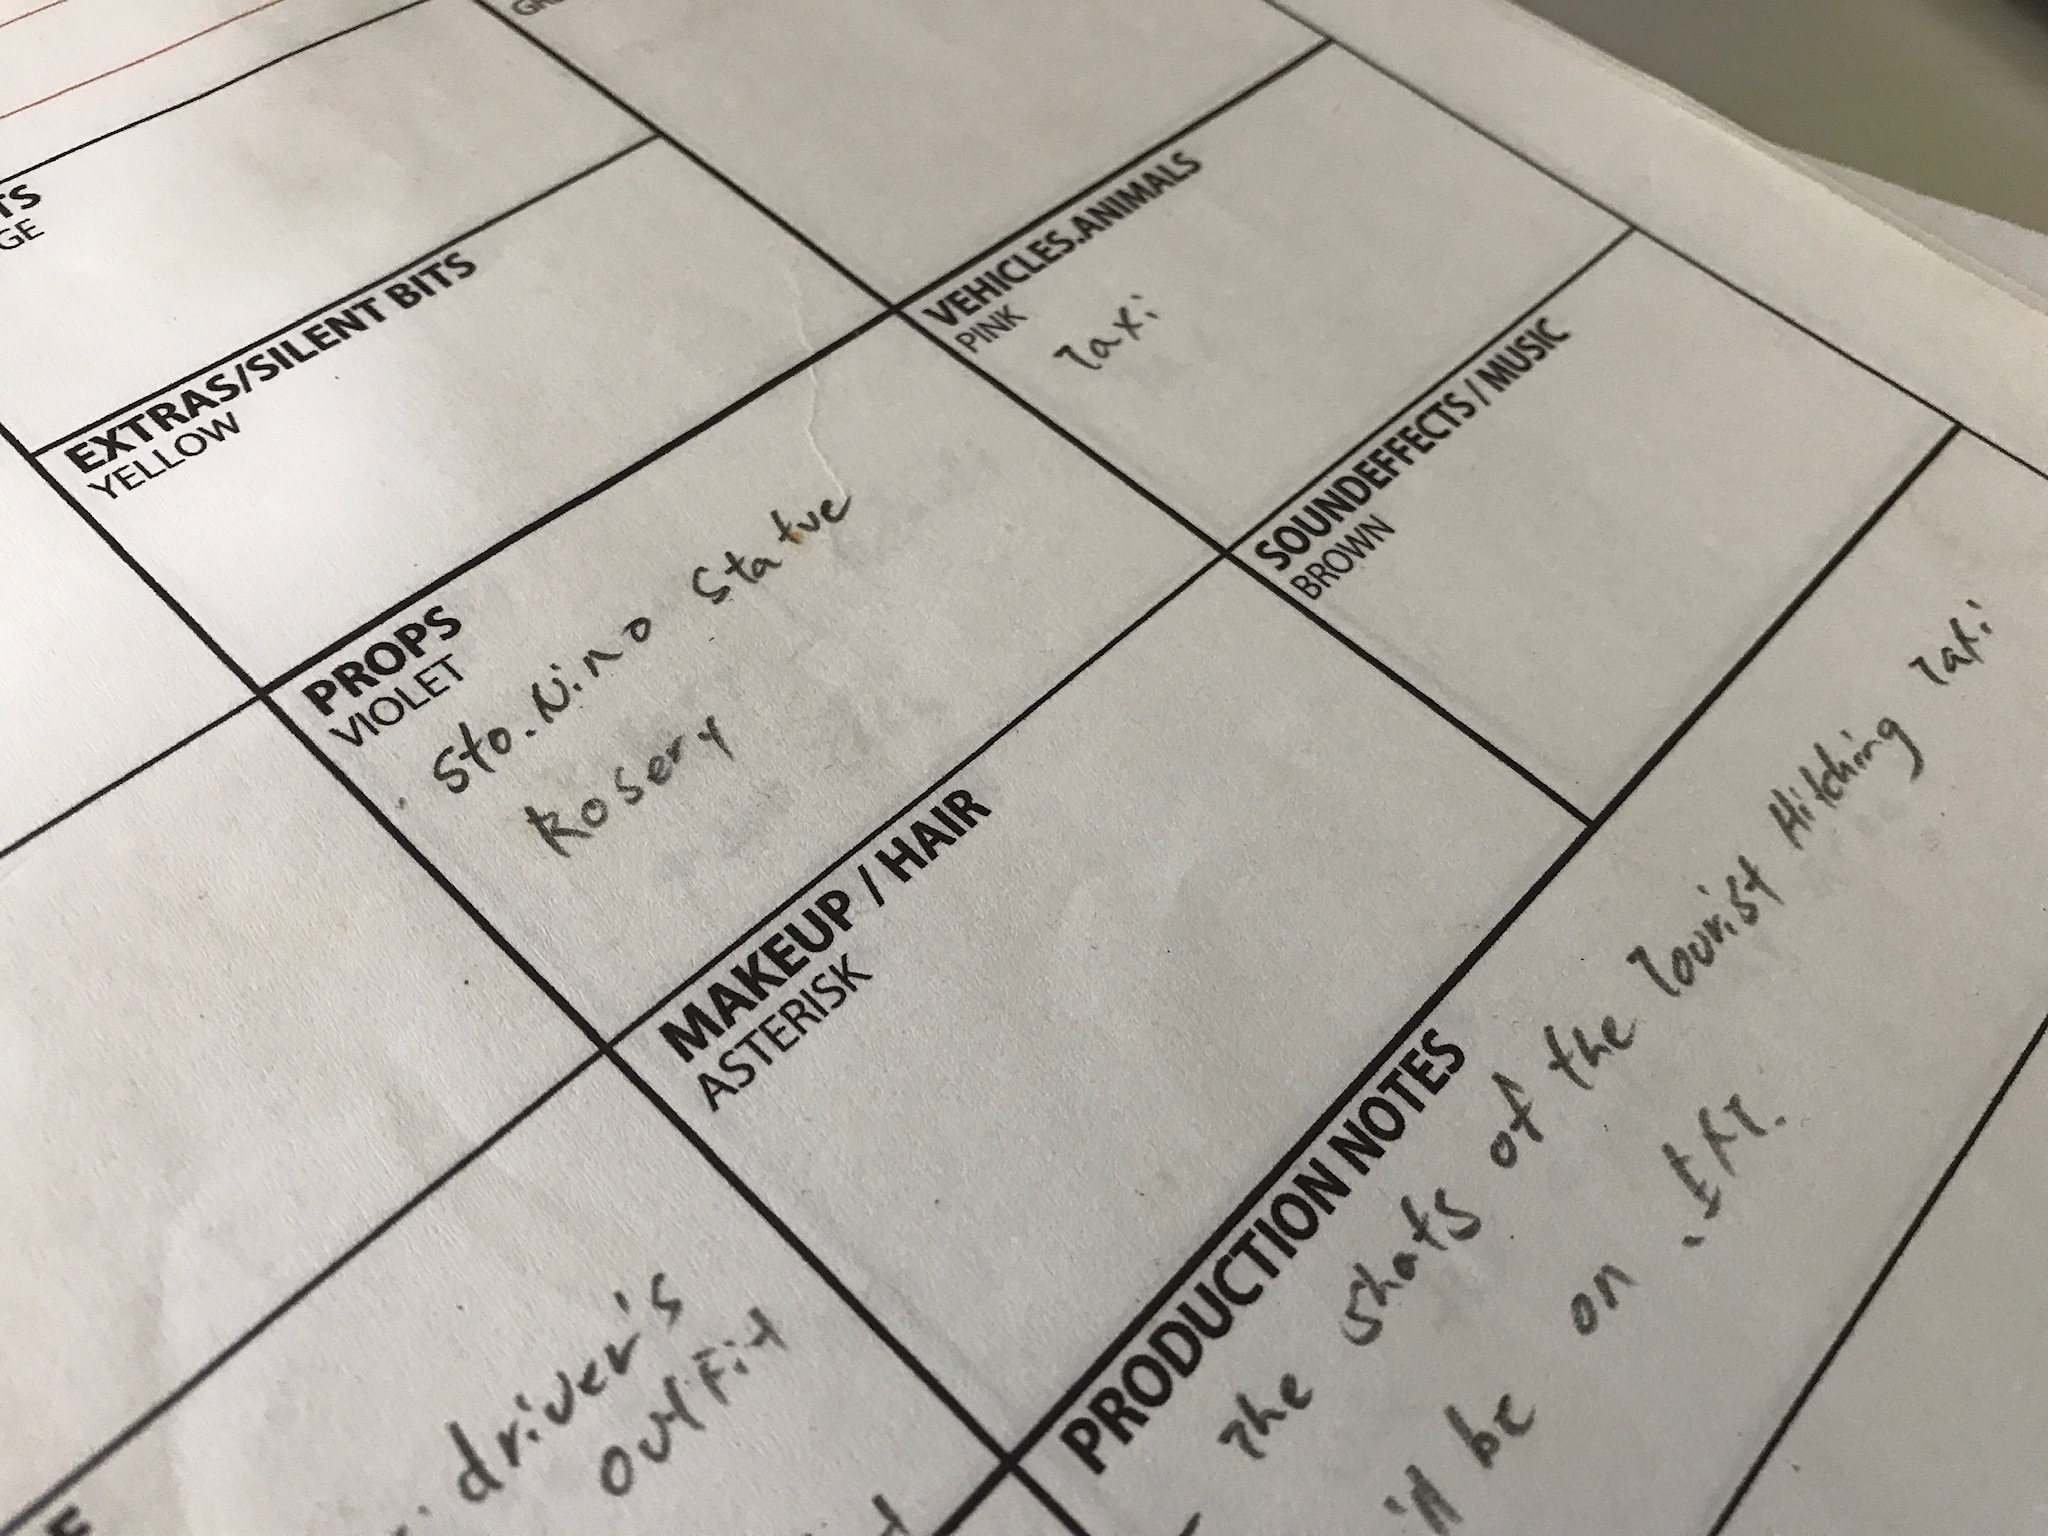 EXTRAS/SILENT BITS
YELLOW
PROPS
VIOLET
Sto. Nino Statue
Rosery
VEHICLES.ANIMALS
PINK
Taxi
MAKEUP / HAIR
ASTERISK
SOUNDEFFECTS / MUSIC
BROWN
driver's
outfit
PRODUCTION NOTES
The shots of the Tourist Hitching Taxi
be on